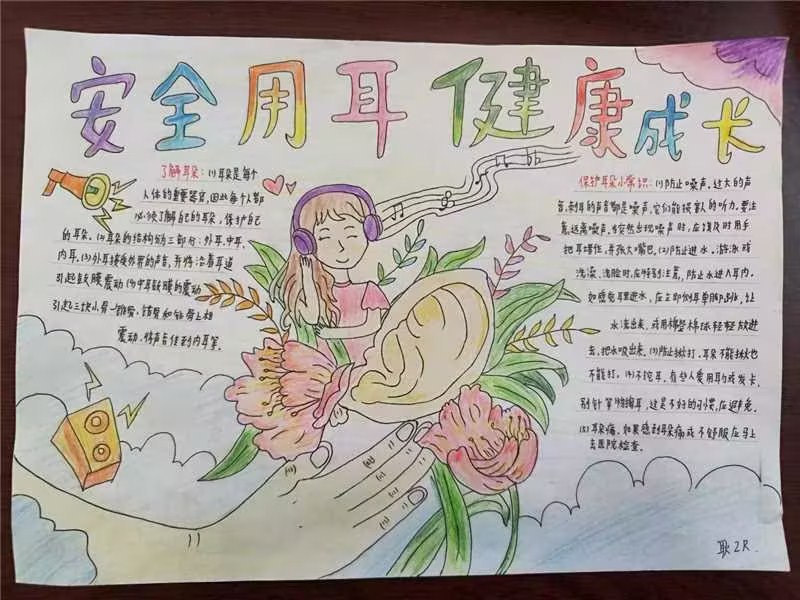 安全用耳健康成长
了解耳朵：(1)耳朵是每个
人体的重要器官，因此每个人都
必须了解自己的耳朵，保护自己
的耳朵。(2)耳朵的结构分为三部分：外耳，中耳，
内耳。(3)外耳接受外界的声音，并将沿着耳道
引起鼓膜震动(4)中耳鼓膜的震动
引起三块小骨一锤骨，砧骨和镫骨上相
震动，将声音传到内耳等。
保护耳朵小常识：(1)防止噪声。过大的声
音，刺耳的声音都是噪声，它们能损害人的听力。要注
意远离噪声，当突然出现噪声时，应该及时用手
把耳堵住，并张大嘴巴。(2)防止进水。游泳或
洗澡、洗脸时，应特别注意，防止水进入耳内。
如感觉耳里进水，应立即侧耳单脚跳，让
水流出来，或用棉签棉球轻轻放进
去，把水吸出来。(3)防止掀打，耳朵不能掀也
不能打。(4)不挖耳，有些人爱用耳勺或发卡，
别针等物掏耳，这是不好的习惯，应避免。
(5)耳朵痛，如果感到耳朵痛或不舒服应马上
去医院检查。